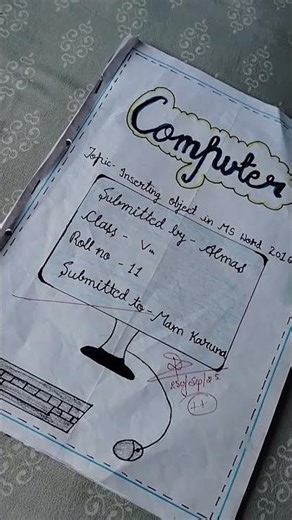 Computer
Topic- Inserting object in MS Word 2016
Submitted by - Almas
Class - V
Roll no - 11
Submitted to - Mam Karuna